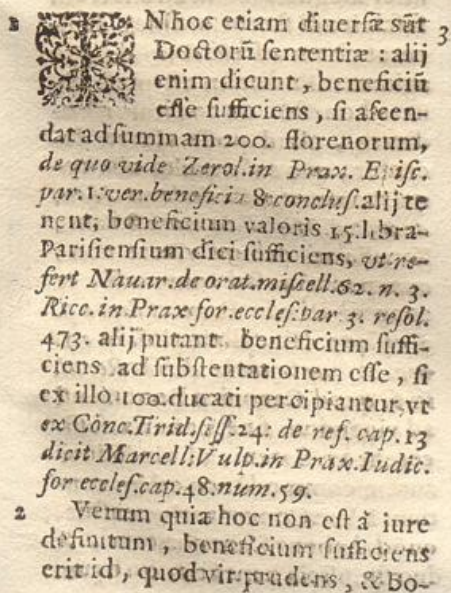 1 IN hoc etiam diuersæ sūt 3
Doctorū sententiæ : alij
enim dicunt, beneficiū
esse sufficiens, si ascen-
dat ad summam 200. florenorum,
de quo vide Zerol. in Prax. Episc.
par. 1. ver. beneficia 8 conclus. alij te
nent, beneficium valoris 15. libra-
Parisiensium dici sufficiens, vt re-
fert Nauar. de orat. miscell. 62. n. 3.
Ricc. in Prax for. eccles. par 3. resol.
473. alij putant beneficium suffi-
ciens ad substentationem esse, si
ex illo 100. ducati percipiantur, vt
ex Conc. Trid. siss. 24: de ref. cap. 13
dicit Marcell: Vulp. in Prax. Iudic.
for eccles. cap. 48. num. 59.
2 Verum quia hoc non est à iure
definitum, beneficium sufficiens
erit id, quod vir prudens, & bo-